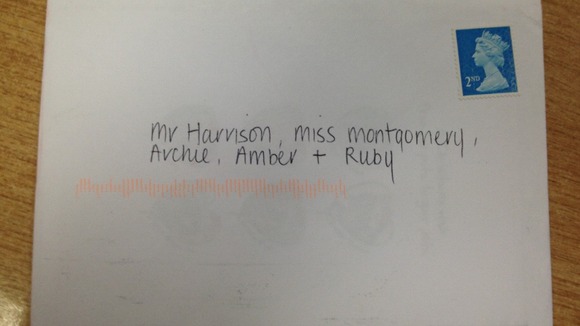 2ND
Mr Harrison, miss montgomery,
Archie, Amber + Ruby